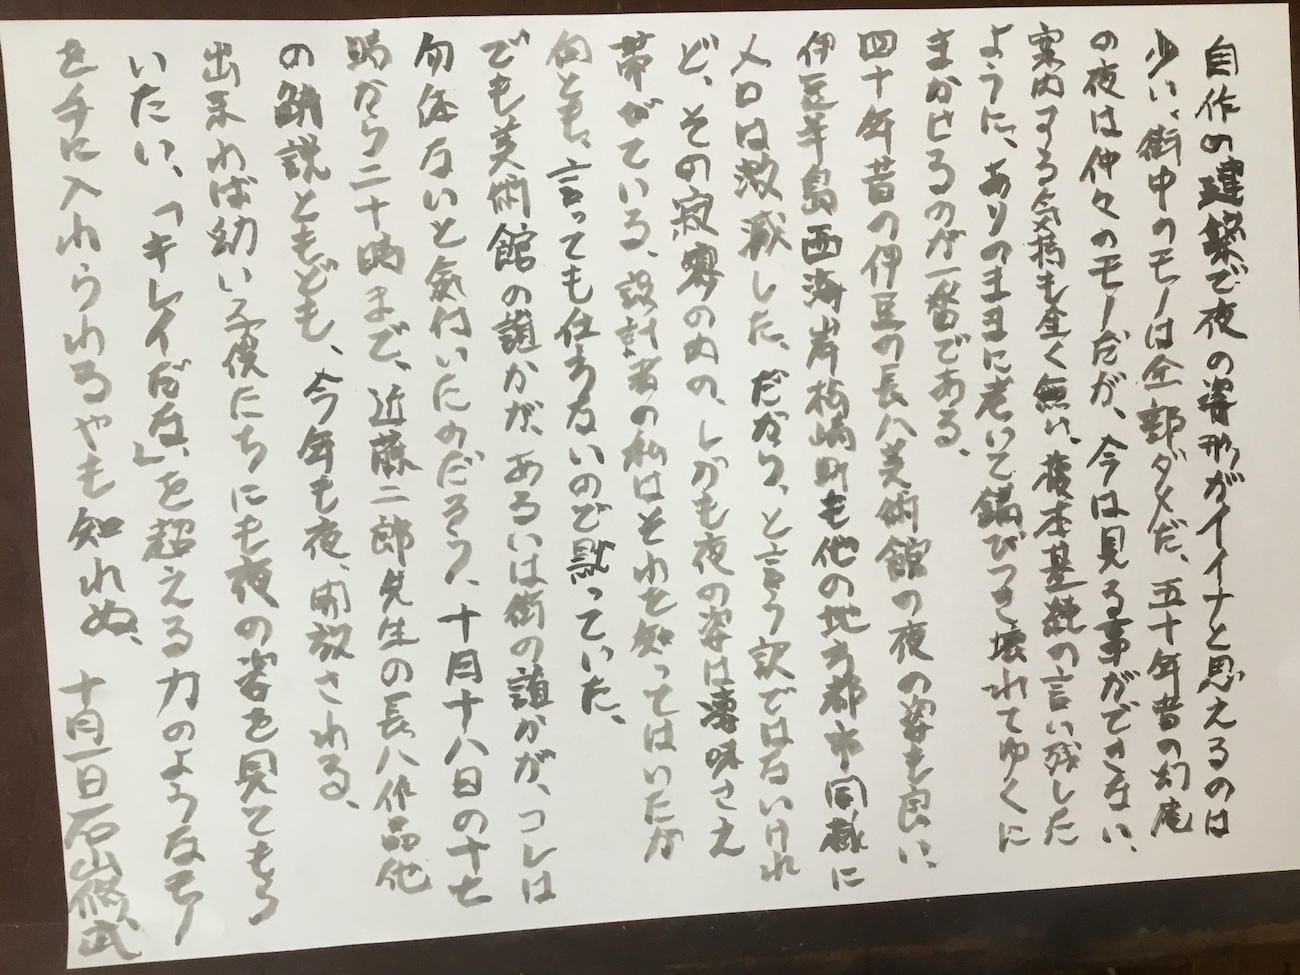 自作の建築で夜の姿形がイイナと思えるのは
少い、街中のモノは全部ダメだ、五十年昔の幻庵
の夜は仲々のモノだが、今は見る事ができない、
案内する気持も全く無い、榎本基純の言い残した
ように、ありのままに老いて錆びつき壊れてゆくに
まかせるのが一番である、
四十年昔の伊豆の長八美術館の夜の姿も良い、
伊豆半島西海岸松崎町も他の地方都市同様に
人口は激減した、だから、と言う訳ではないけれ
ど、その寂寥の内の、しかも夜の姿は凄味さえ
帯びている、設計者の私はそれを知ってはいたが
何とも、言っても仕方ないので黙っていた、
でも美術館の誰かが、あるいは街の誰かが、コレは
勿体ないと気付いたのだろう、十月十八日の十七
時から二十時まで、近藤二郎先生の長八作品他
の解説ともども、今年も夜、開放される、
出来れば幼い子供たちにも夜の姿を見てもら
いたい、「キレイだな」を超える力のようなモノ
を手に入れられるやも知れぬ、 十月一日石山修武